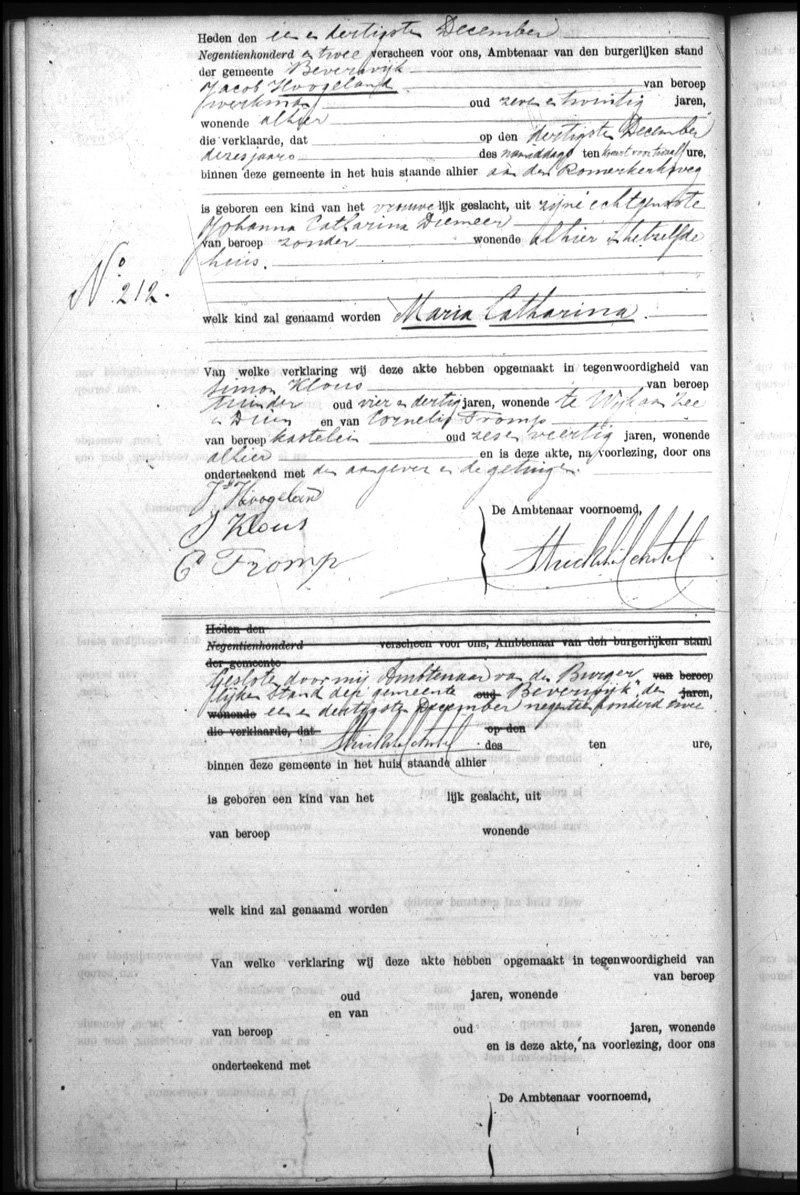 Heden den een en dertigsten December
Negentienhonderd en twee verscheen voor ons, Ambtenaar van den burgerlijken stand
der gemeente Beverwijk
Jacob Hoogeland van beroep
werkman oud zeven en twintig jaren,
wonende alhier
die verklaarde, dat op den dertigsten December
dezes jaars des namiddags ten kwart voor twaalf ure,
binnen deze gemeente in het huis staande alhier aan den Romerkerkweg
is geboren een kind van het vrouwelijk geslacht, uit zijne echtgenoote
Johanna Catharina Diemeer
van beroep zonder wonende alhier in hetzelfde
huis.
No. 212.
welk kind zal genaamd worden Maria Catharina.
Van welke verklaring wij deze akte hebben opgemaakt in tegenwoordigheid van
Simon Klous van beroep
tuinder oud vier en dertig jaren, wonende te Wijk aan Zee
en Duin en van Cornelis Tromp
van beroep kastelein oud zes en veertig jaren, wonende
alhier en is deze akte, na voorlezing, door ons
onderteekend met den aangever en de getuigen.
Jb Hoogeland
S Klous
C Tromp
De Ambtenaar voornoemd,
Heden den
Negentienhonderd verscheen voor ons, Ambtenaar van den burgerlijken stand
der gemeente
Gesloten door mij Ambtenaar van den Burger van beroep
lijken stand der gemeente oud Beverwijk, den jaren,
wonende een en dertigsten December negentienhonderd twee
die verklaarde, dat op den
des ten ure,
binnen deze gemeente in het huis staande alhier
is geboren een kind van het lijk geslacht, uit
van beroep wonende
welk kind zal genaamd worden
Van welke verklaring wij deze akte hebben opgemaakt in tegenwoordigheid van
van beroep
oud jaren, wonende
en van
van beroep oud jaren, wonende
en is deze akte, na voorlezing, door ons
onderteekend met
De Ambtenaar voornoemd,